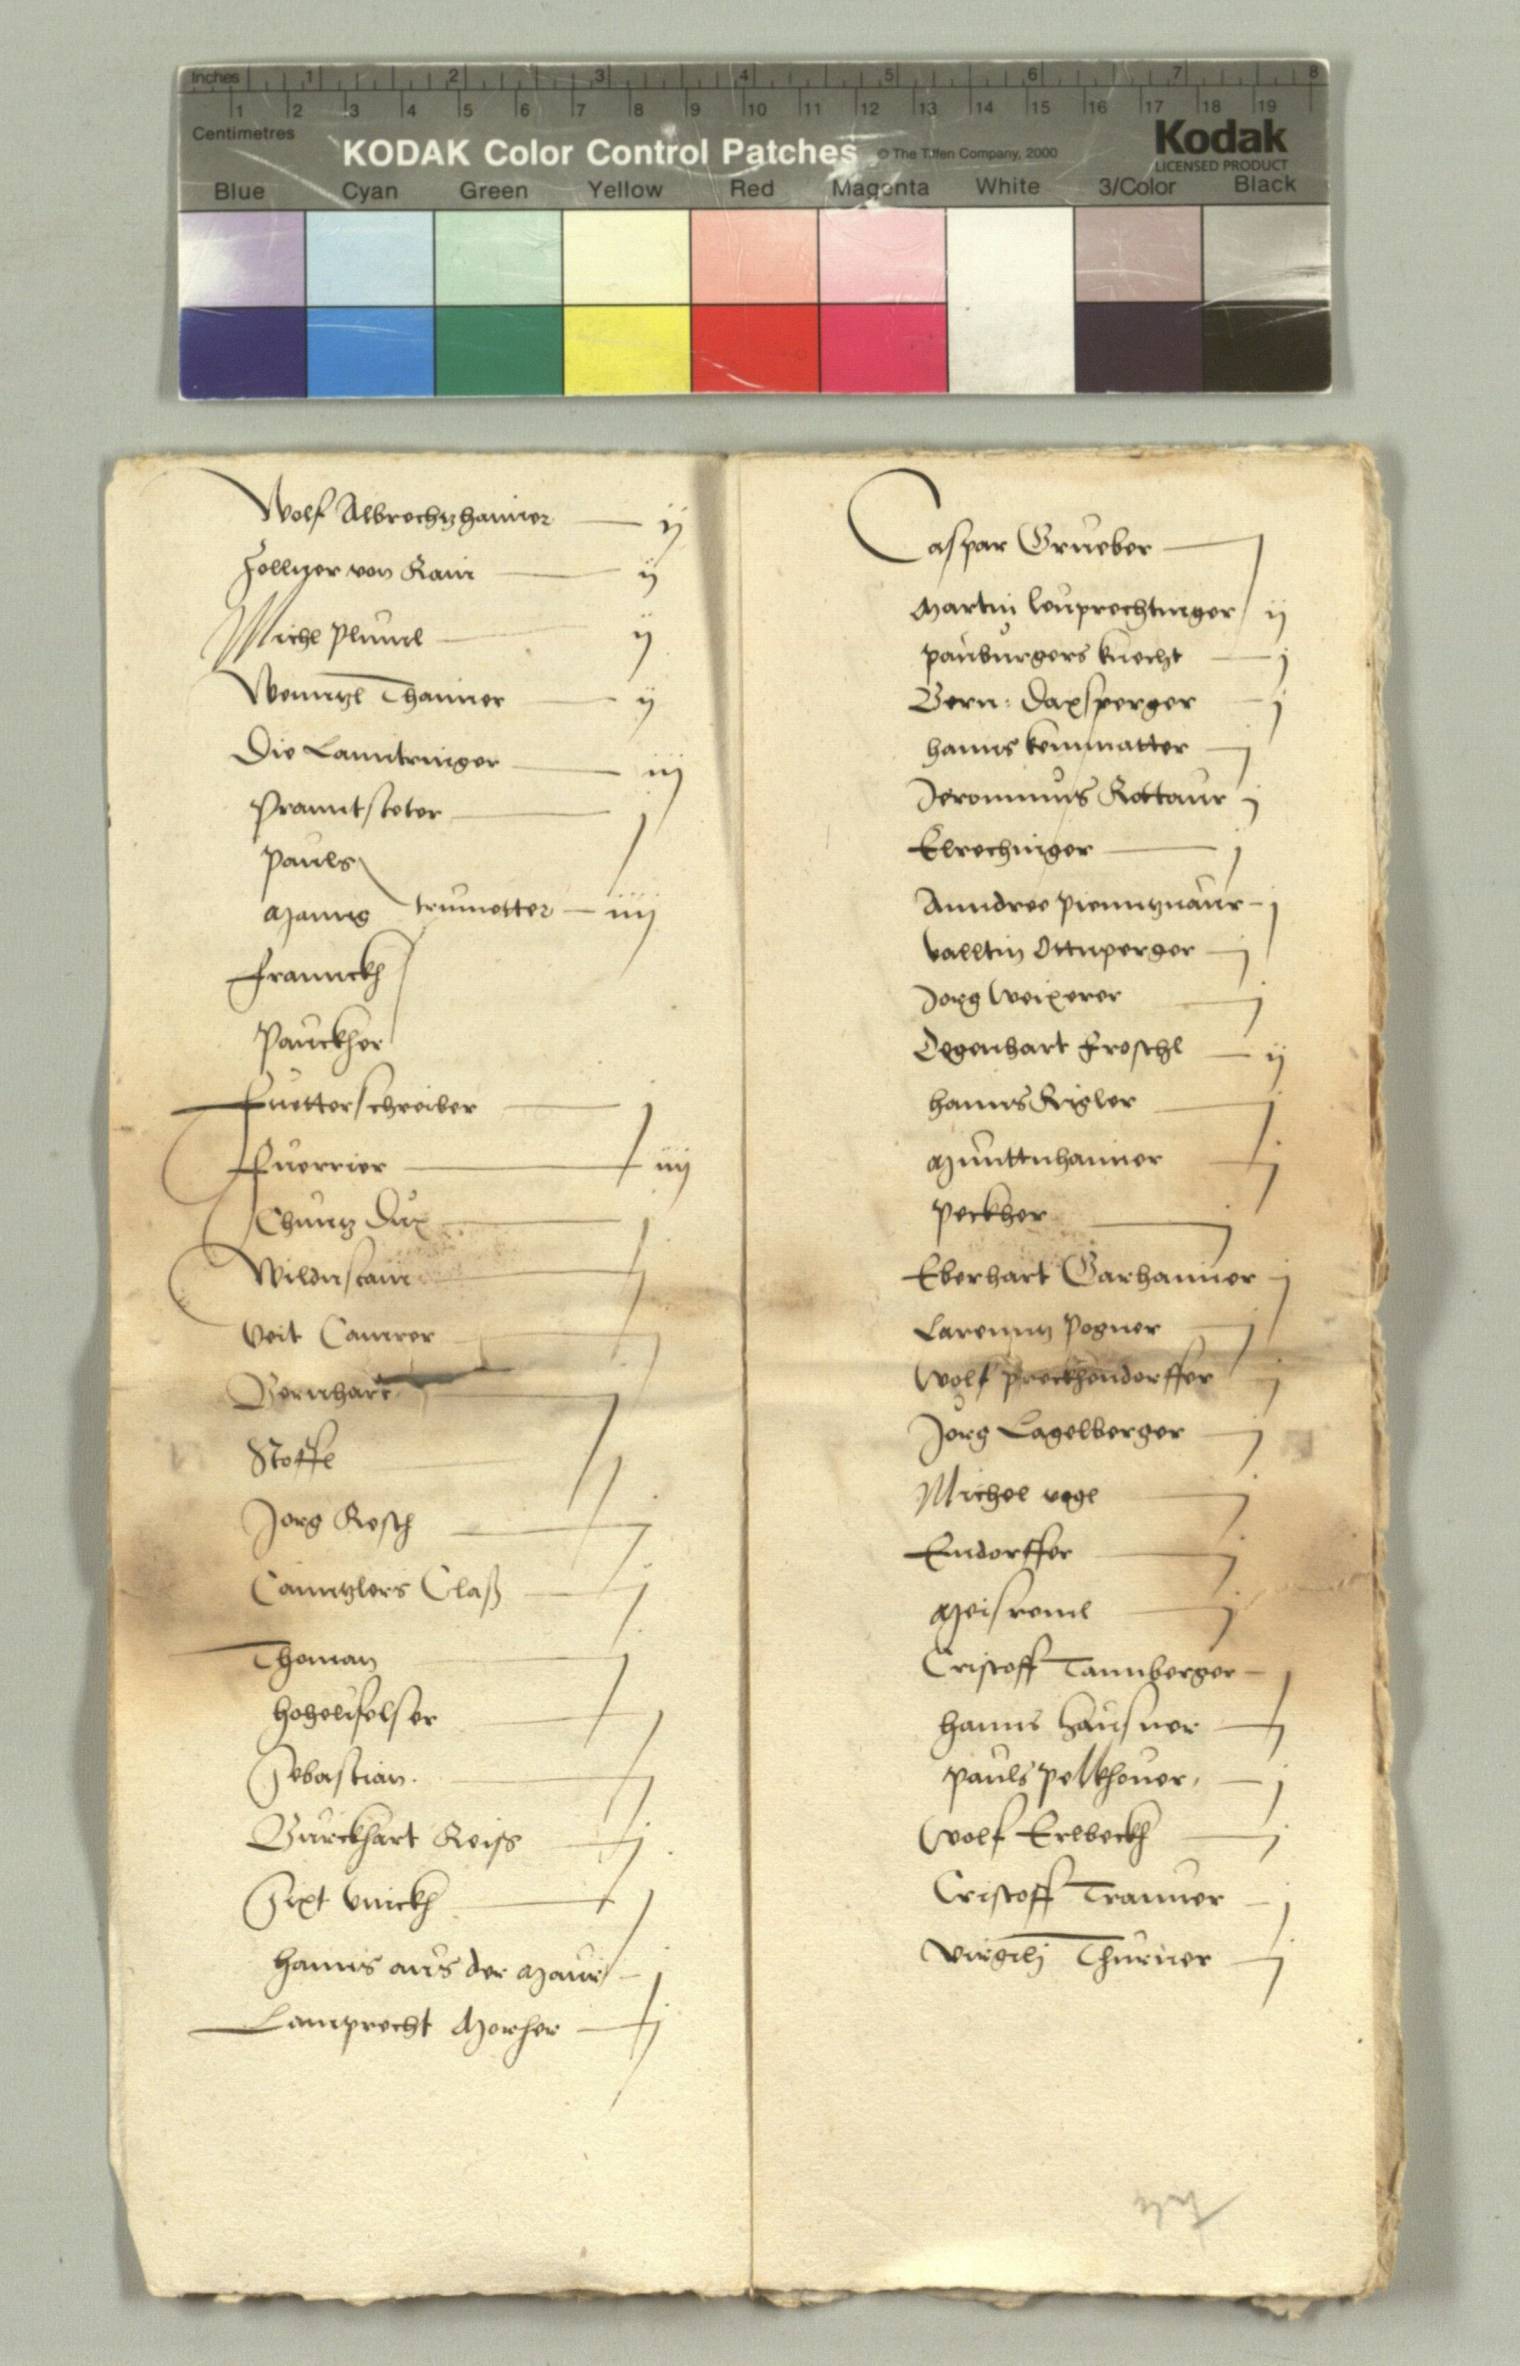 Inches 1 2 3 4 5 6 7 8
1 2 3 4 5 6 7 8 9 10 11 12 13 14 15 16 17 18 19
Centimetres
KODAK Color Control Patches © The Tiffen Company, 2000 Kodak
LICENSED PRODUCT
Blue Cyan Green Yellow Red Magenta White 3/Color Black
Wolf Albrechtzhaimer ij
Zollner von Rain ij
Michl ij
Wenntzl Thanner ij
Die iij
Pranntsteter j
Pauls
trumetter iiij
Frannckh
Pauckher
Fuetterschreiber j
Fuerrier iiij
j
Wildnstain j
Veit Camrer j
Bernhart j
Stoffl j
Jorg Resch j
Canntzlers Claß j
Thoman j
hohenfelser j
Sebastian j
Burckhart Reiss j
Sixt j
Hanns aus der Maur j
Lamprecht j
Caspar Grueber j
Martin leuprechtinger ij
Panburgers knecht j
Bern: Daxsperger j
hanns kemmatter j
Jeronimus Rottaur j
Elrechinger j
Anndree Pienntznaur j
Valltin Ottnperger j
Jorg Weixerer j
Degenhart Froschl ij
hanns Rigler j
j
Peckher j
Eberhart Garhamer j
Larenntz Pogner j
Wolf Preckhendorffer j
Jorg Lagelberger j
Michel vogl j
Endorffer j
j
Cristoff Tannberger j
hanns hausner j
Pauls Pelkhover j
Wolf Erlbeckh j
Cristoff Tranner j
Virgilj Thurner j